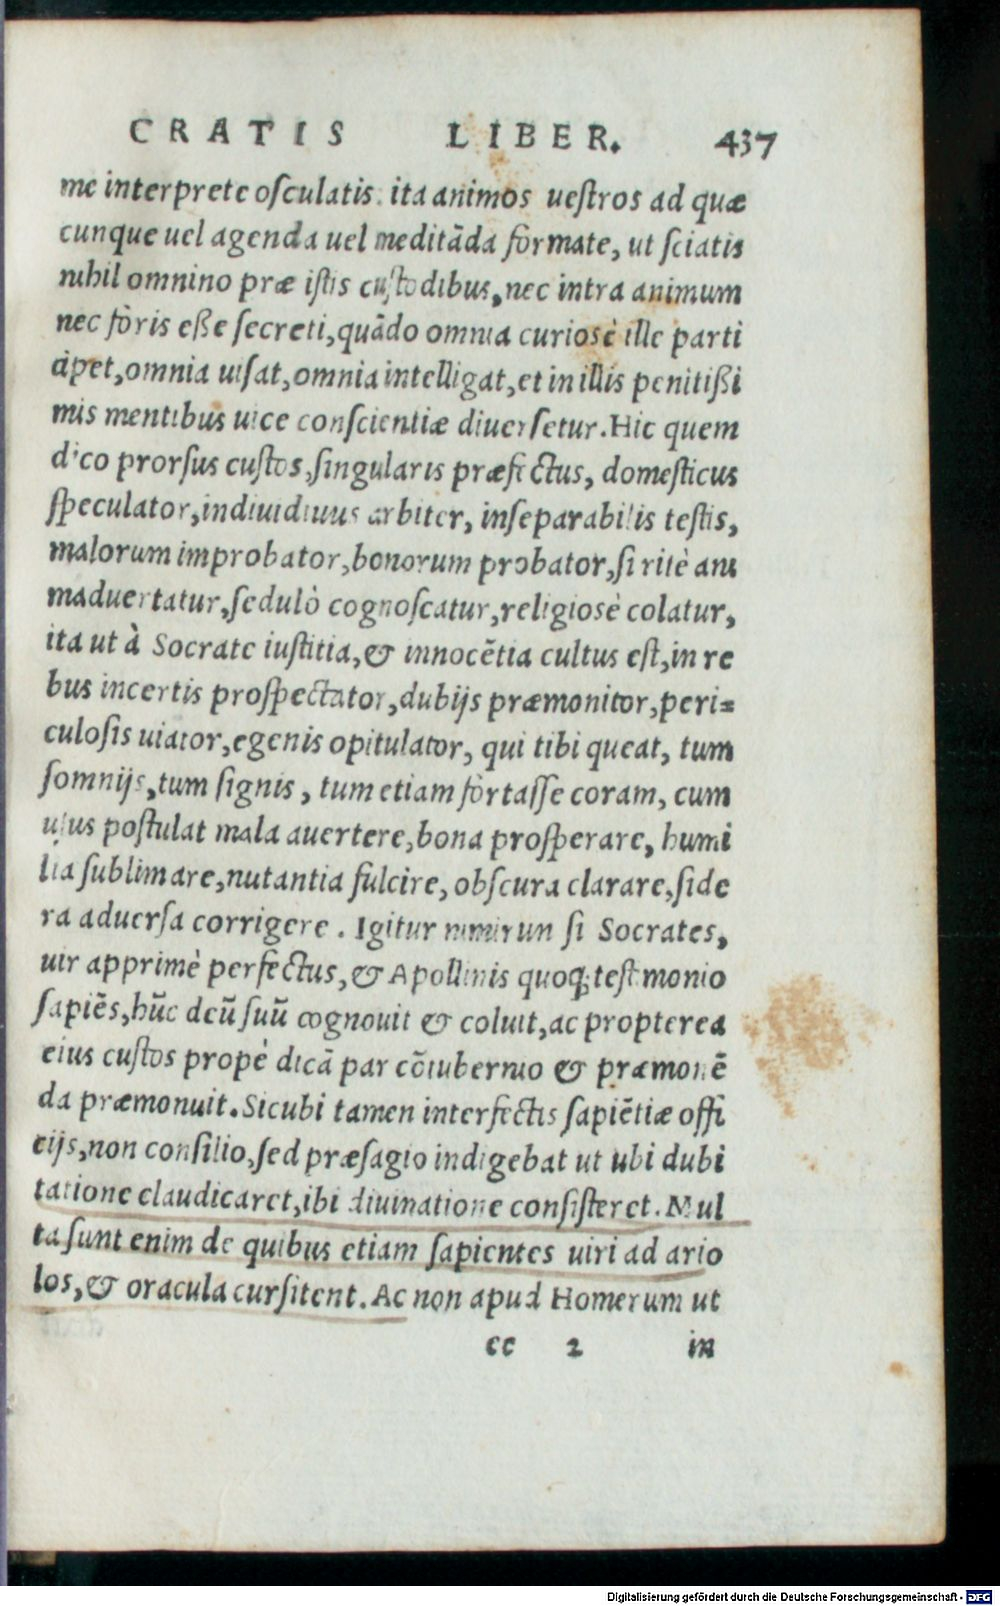 CRATIS LIBER. 437
me interprete osculatis. ita animos uestros ad quæ
cunque uel agenda uel meditāda formate, ut sciatis
nihil omnino præ istis custodibus, nec intra animum
nec foris eße secreti, quādo omnia curiosè ille parti
cipet, omnia uisat, omnia intelligat, et in illis penitißi
mis mentibus uice conscientiæ diuersetur. Hic quem
dico prorsus custos, singularis præfectus, domesticus
speculator, indiuiduus arbiter, inseparabilis testis,
malorum improbator, bonorum probator, si ritè ani
maduertatur, sedulò cognoscatur, religiosè colatur,
ita ut à Socrate iustitia, & innocētia cultus est, in re
bus incertis prospectator, dubijs præmonitor, peri=
culosis uiator, egenis opitulator, qui tibi queat, tum
somnijs, tum signis, tum etiam fortasse coram, cum
usus postulat mala auertere, bona prosperare, humi
lia sublimare, nutantia fulcire, obscura clarare, side
ra aduersa corrigere. Igitur nimirun si Socrates,
uir apprimè perfectus, & Apollinis quoq; testimonio
sapiēs, hūc deū suū cognouit & coluit, ac propterea
eius custos propè dicā par cōtubernio & præmonē
da præmonuit. Sicubi tamen interfectis sapiētiæ offi
cijs, non consilio, sed præsagio indigebat ut ubi dubi
tatione claudicaret, ibi diuinatione consisteret. Mul
ta sunt enim de quibus etiam sapientes uiri ad ario
los, & oracula cursitent. Ac non apud Homerum ut
cc 2 in
Digitalisierung gefördert durch die Deutsche Forschungsgemeinschaft - DFG